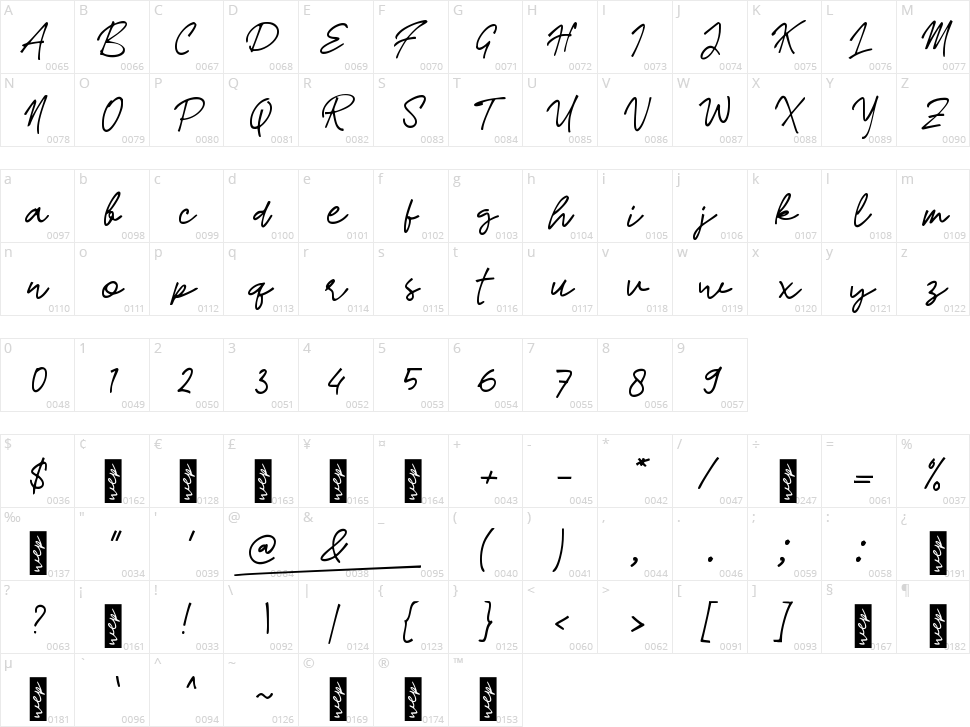 A B C D E F G H I J K L M
A B C D E F G H I J K L M
0065 0066 0067 0068 0069 0070 0071 0072 0073 0074 0075 0076 0077
N O P Q R S T U V W X Y Z
N O P Q R S T U V W X Y Z
0078 0079 0080 0081 0082 0083 0084 0085 0086 0087 0088 0089 0090
a b c d e f g h i j k l m
a b c d e f g h i j k l m
0097 0098 0099 0100 0101 0102 0103 0104 0105 0106 0107 0108 0109
n o p q r s t u v w x y z
n o p q r s t u v w x y z
0110 0111 0112 0113 0114 0115 0116 0117 0118 0119 0120 0121 0122
0 1 2 3 4 5 6 7 8 9
0 1 2 3 4 5 6 7 8 9
0048 0049 0050 0051 0052 0053 0054 0055 0056 0057
$ ¢ € £ ¥ ¤ + - * / ÷ = %
$ wep wep wep wep wep + - * / wep = %
0036 0162 0128 0163 0165 0164 0043 0045 0042 0047 0247 0061 0037
‰ " ' @ & _ ( ) , . ; : ¿
wep " ' @ & _ ( ) , . ; : wep
0137 0034 0039 0064 0038 0095 0040 0041 0044 0046 0059 0058 0191
? ¡ ! \ | { } < > [ ] § ¶
? wep ! \ | { } < > [ ] wep wep
0063 0161 0033 0092 0124 0123 0125 0060 0062 0091 0093 0167 0182
µ ` ^ ~ © ® ™
wep ` ^ ~ wep wep wep
0181 0096 0094 0126 0169 0174 0153